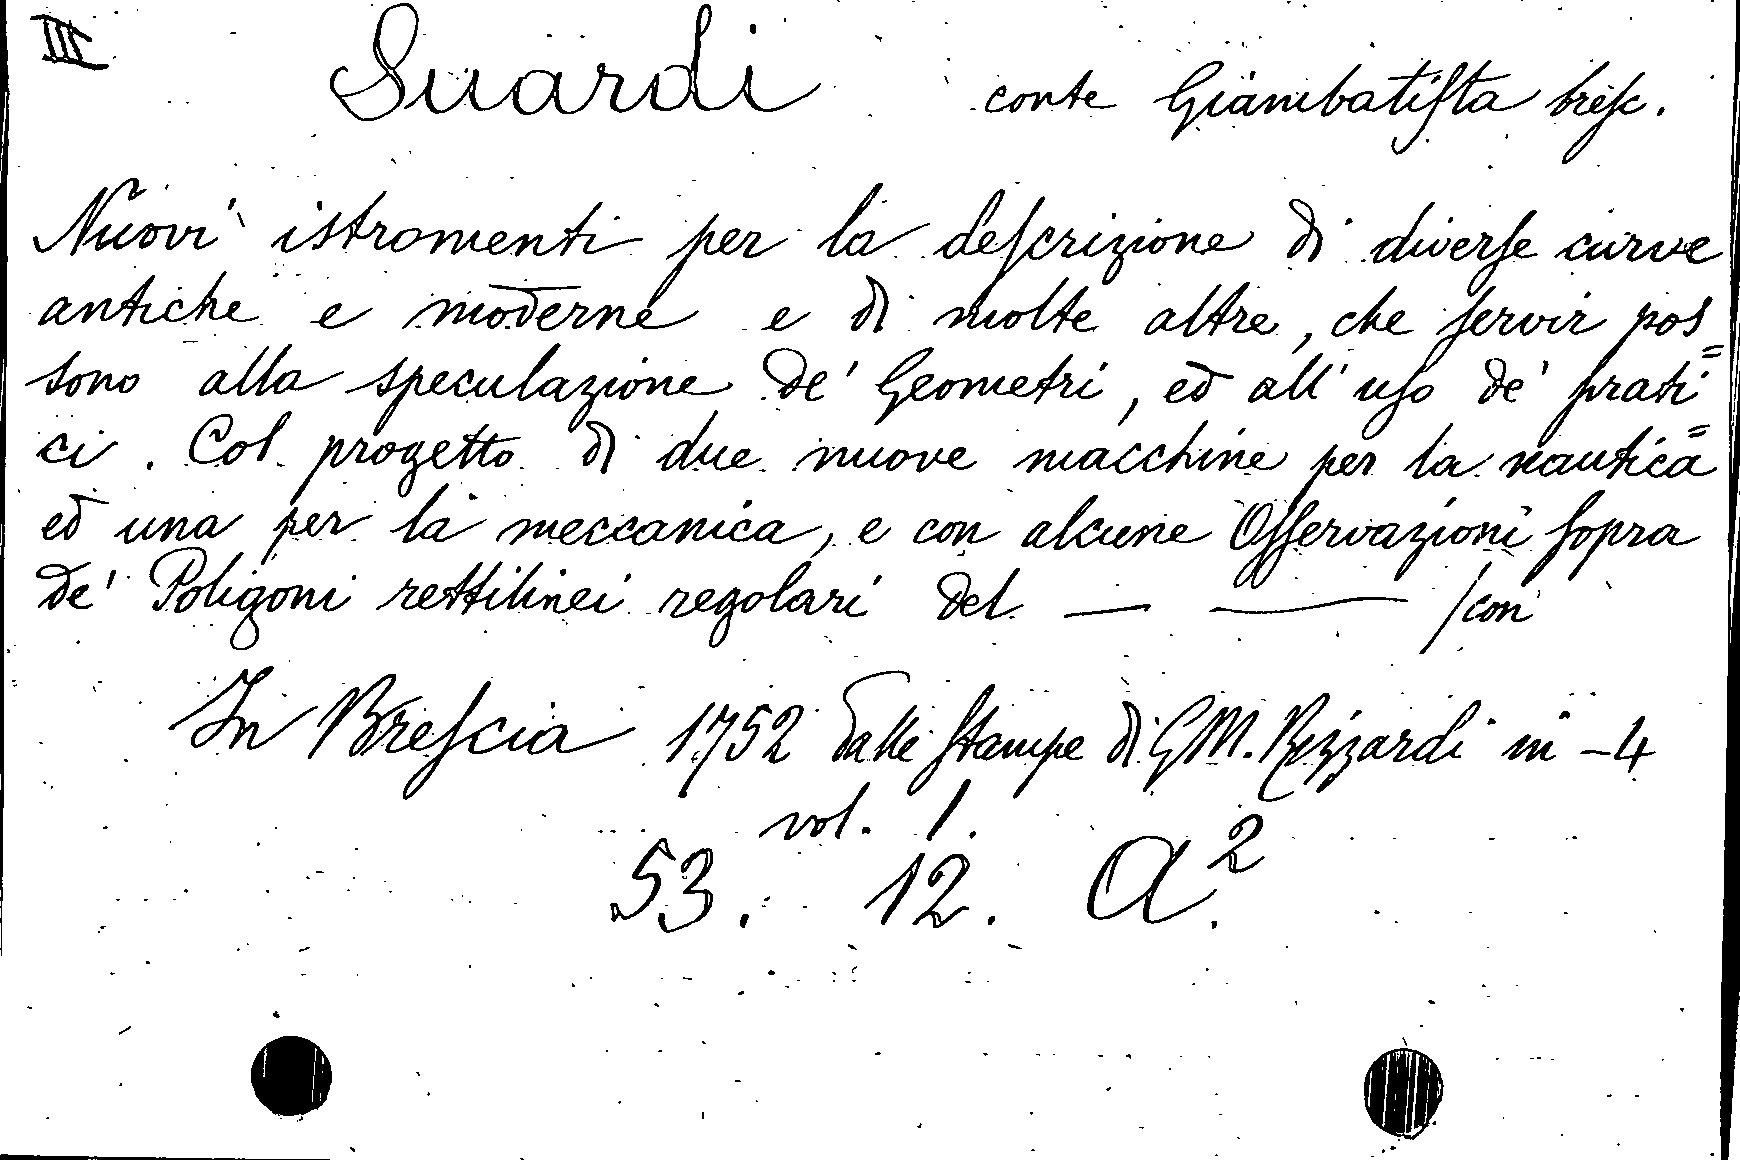 III Suardi conte Giambatiſta breſc.
Nuovi istromenti per la deſcrizione di diverſe curve
antiche e moderne e di molte altre, che ſervir pos=
sono alla speculazione de' Geometri, ed all' uſo de' prati=
ci. Col progetto di due nuove macchine per la nautica
ed una per la meccanica, e con alcune Oſſervazioni ſopra
de' Poligoni rettilinei regolari del — — /con
In Breſcia 1752 dalle ſtampe di G.M. Rizzardi in-4
vol. 1.
53. 12. A².